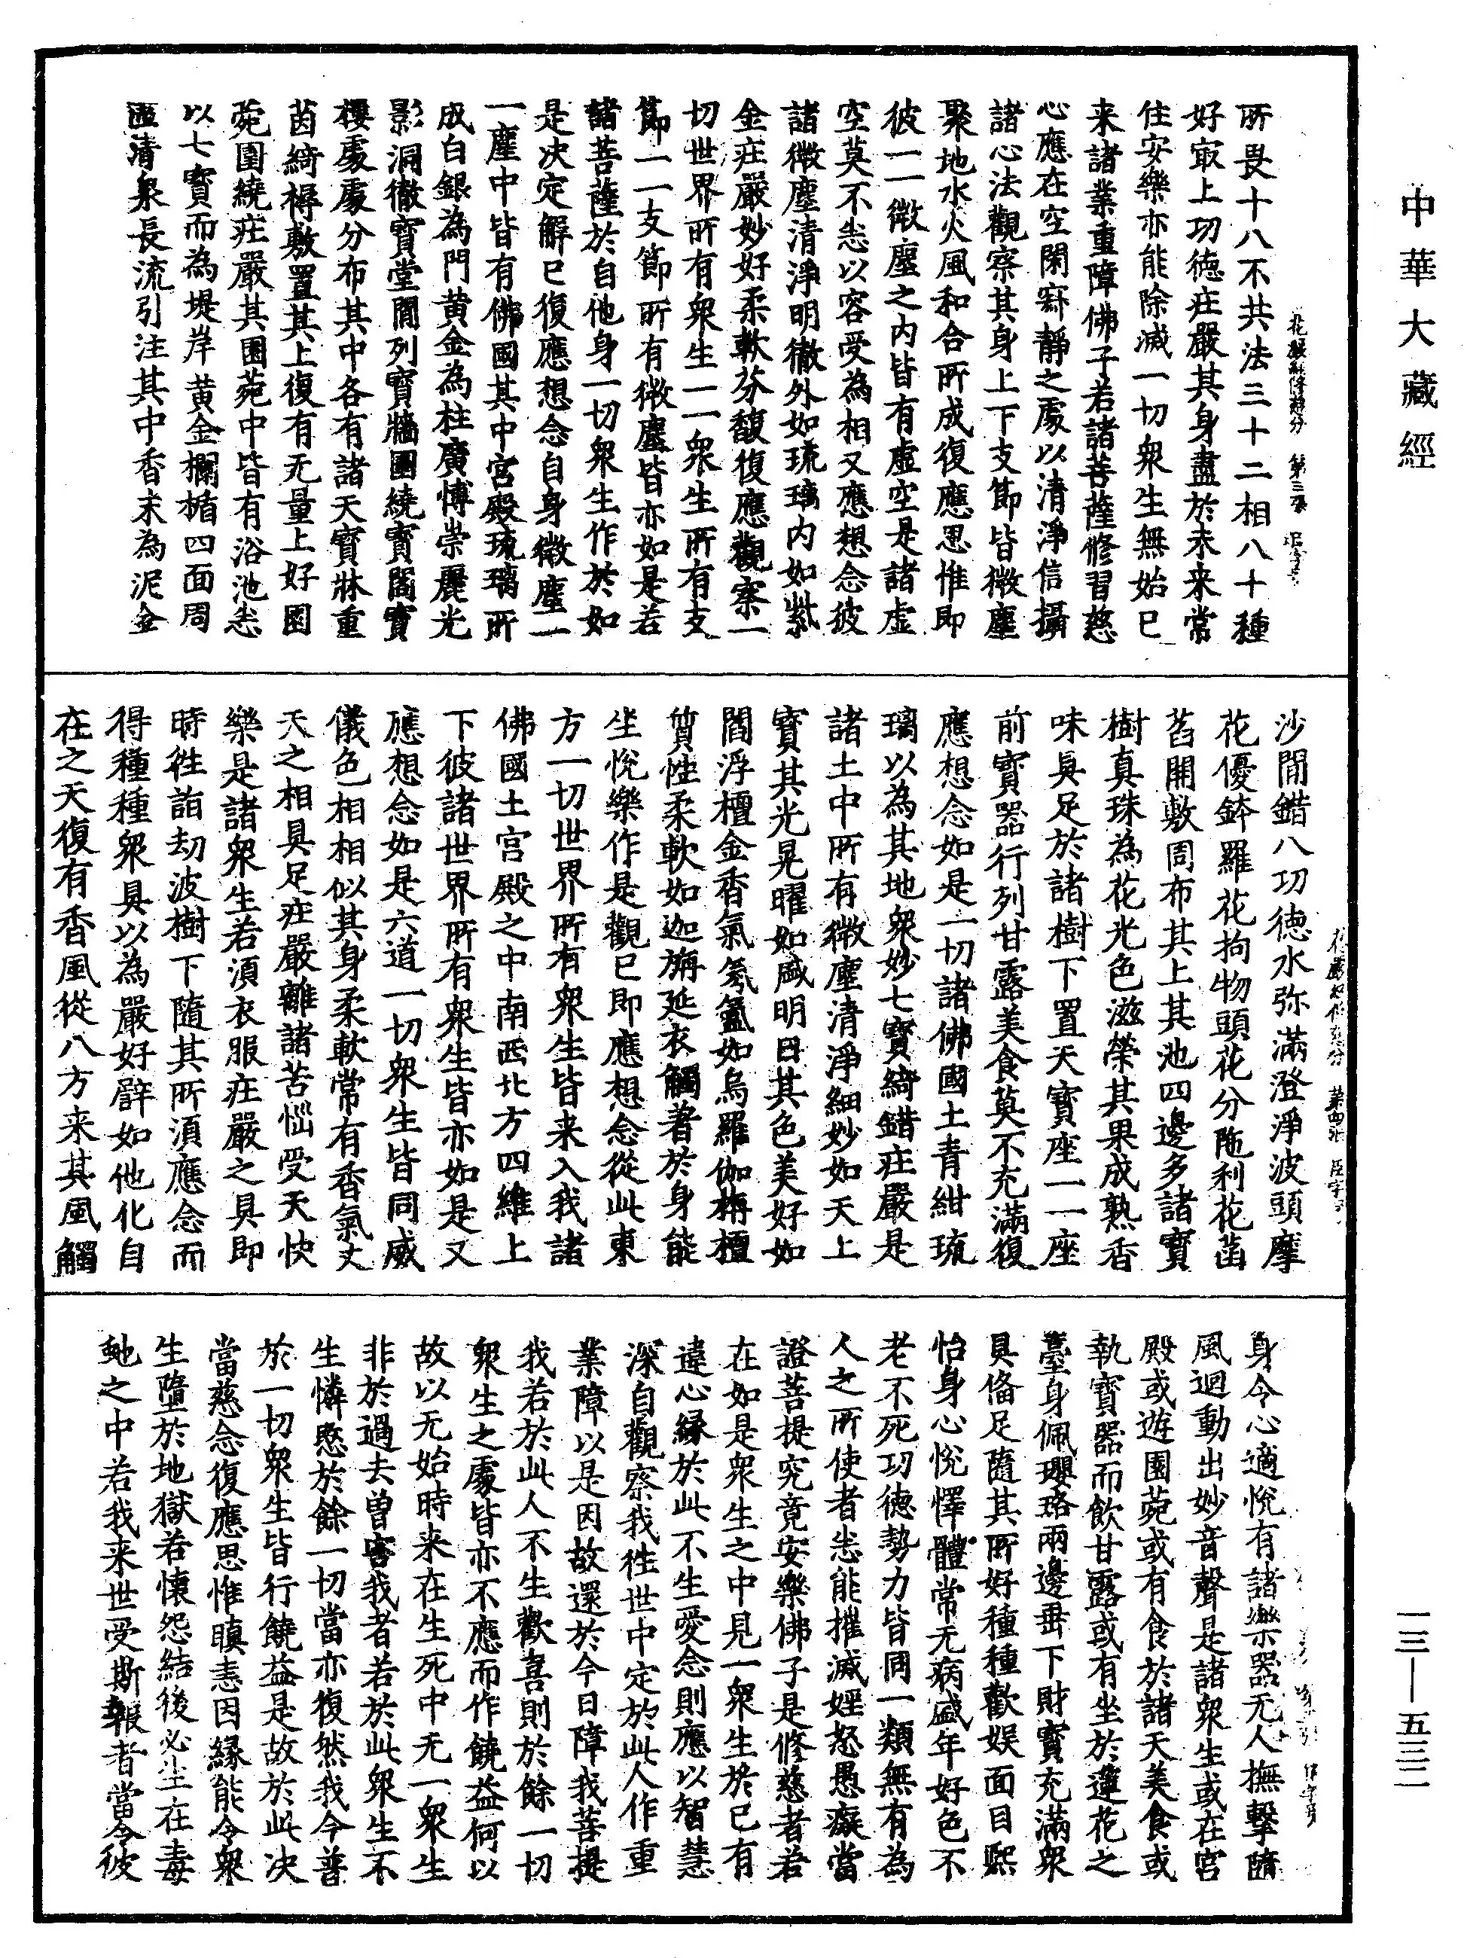 中華大藏經
所畏十八不共法三十二相八十種
好㝡上功德莊嚴其身盡於未来常
住安樂亦能除滅一切衆生無始已
来諸業重障佛子若諸菩薩修習慈
心應在空閑寂靜之處以清淨信攝
諸心法觀察其身上下支節皆微塵
聚地水火風和合所成復應思惟即
彼一一微塵之内皆有虛空是諸虛
空莫不悉以容受為相又應想念彼
諸微塵清淨明徹外如琉璃内如紫
金莊嚴妙好柔軟芬馥復應觀察一
切世界所有衆生一一衆生所有支
節一一支節所有微塵皆亦如是若
諸菩薩於自他身一切衆生作於如
是決定解已復應想念自身微塵一
一塵中皆有佛國其中宮殿琉璃所
成白銀為門黄金為柱廣博崇麗光
影洞徹寶堂閒列寶牆圍繞寶閣寶
樓處處分布其中各有諸天寶牀重
茵綺褥敷置其上復有无量上好園
菀圍繞莊嚴其園菀中皆有浴池悉
以七寶而為堤岸黄金欄楯四面周
匝清泉長流引注其中香末為泥金
沙間錯八功德水弥滿澄淨波頭摩
花優鉢羅花拘物頭花分陁利花菡
萏開敷周布其上其池四邊多諸寶
樹真珠為花光色滋榮其果成熟香
味具足於諸樹下置天寶座一一座
前寶器行列甘露美食莫不充滿復
應想念如是一切諸佛國土青紺琉
璃以為其地衆妙七寶綺錯莊嚴是
諸土中所有微塵清淨細妙如天上
寶其光晃曜如盛明日其色美好如
閻浮檀金香氣氛氳如烏羅伽栴檀
質性柔軟如迦旃延衣觸著於身能
生悅樂作是觀已即應想念從此東
方一切世界所有衆生皆来入我諸
佛國土宮殿之中南西北方四維上
下彼諸世界所有衆生皆亦如是又
應想念如是六道一切衆生皆同威
儀色相相似其身柔軟常有香氣丈
夫之相具足莊嚴離諸苦惱受天快
樂是諸衆生若湏衣服莊嚴之具即
時徃詣劫波樹下隨其所湏應念而
得種種衆具以為嚴好譬如他化自
在之天復有香風從八方来其風觸
身令心適悅有諸樂器无人撫擊隨
風迴動出妙音聲是諸衆生或在宮
殿或遊園菀或有食於諸天美食或
執寶器而飲甘露或有坐於蓮花之
臺身佩瓔珞兩邊垂下財寶充滿衆
具俻足隨其所好種種歡娱面目熙
怡身心悅懌體常无病盛年好色不
老不死功德勢力皆同一類無有為
人之所使者悉能摧滅婬怒愚癡當
證菩提究竟安樂佛子是修慈者若
在如是衆生之中見一衆生於己有
違心緣於此不生愛念則應以智慧
深自觀察我徃世中定於此人作重
業障以是因故還於今日障我菩提
我若於此人不生歡喜則於餘一切
衆生之處皆亦不應而作饒益何以
故以无始時来在生死中无一衆生
非於過去曽害我者若於此衆生不
生憐愍於餘一切當亦復然我今普
於一切衆生皆行饒益是故於此决
當慈念復應思惟瞋恚因緣能令衆
生墮於地獄若懷怨結後必生在毒
虵之中若我来世受斯報者當令彼
一三—五三二